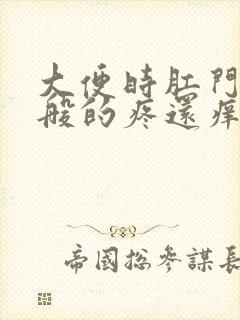 大便時肛門
般的疼還痒
帝國総參謀長